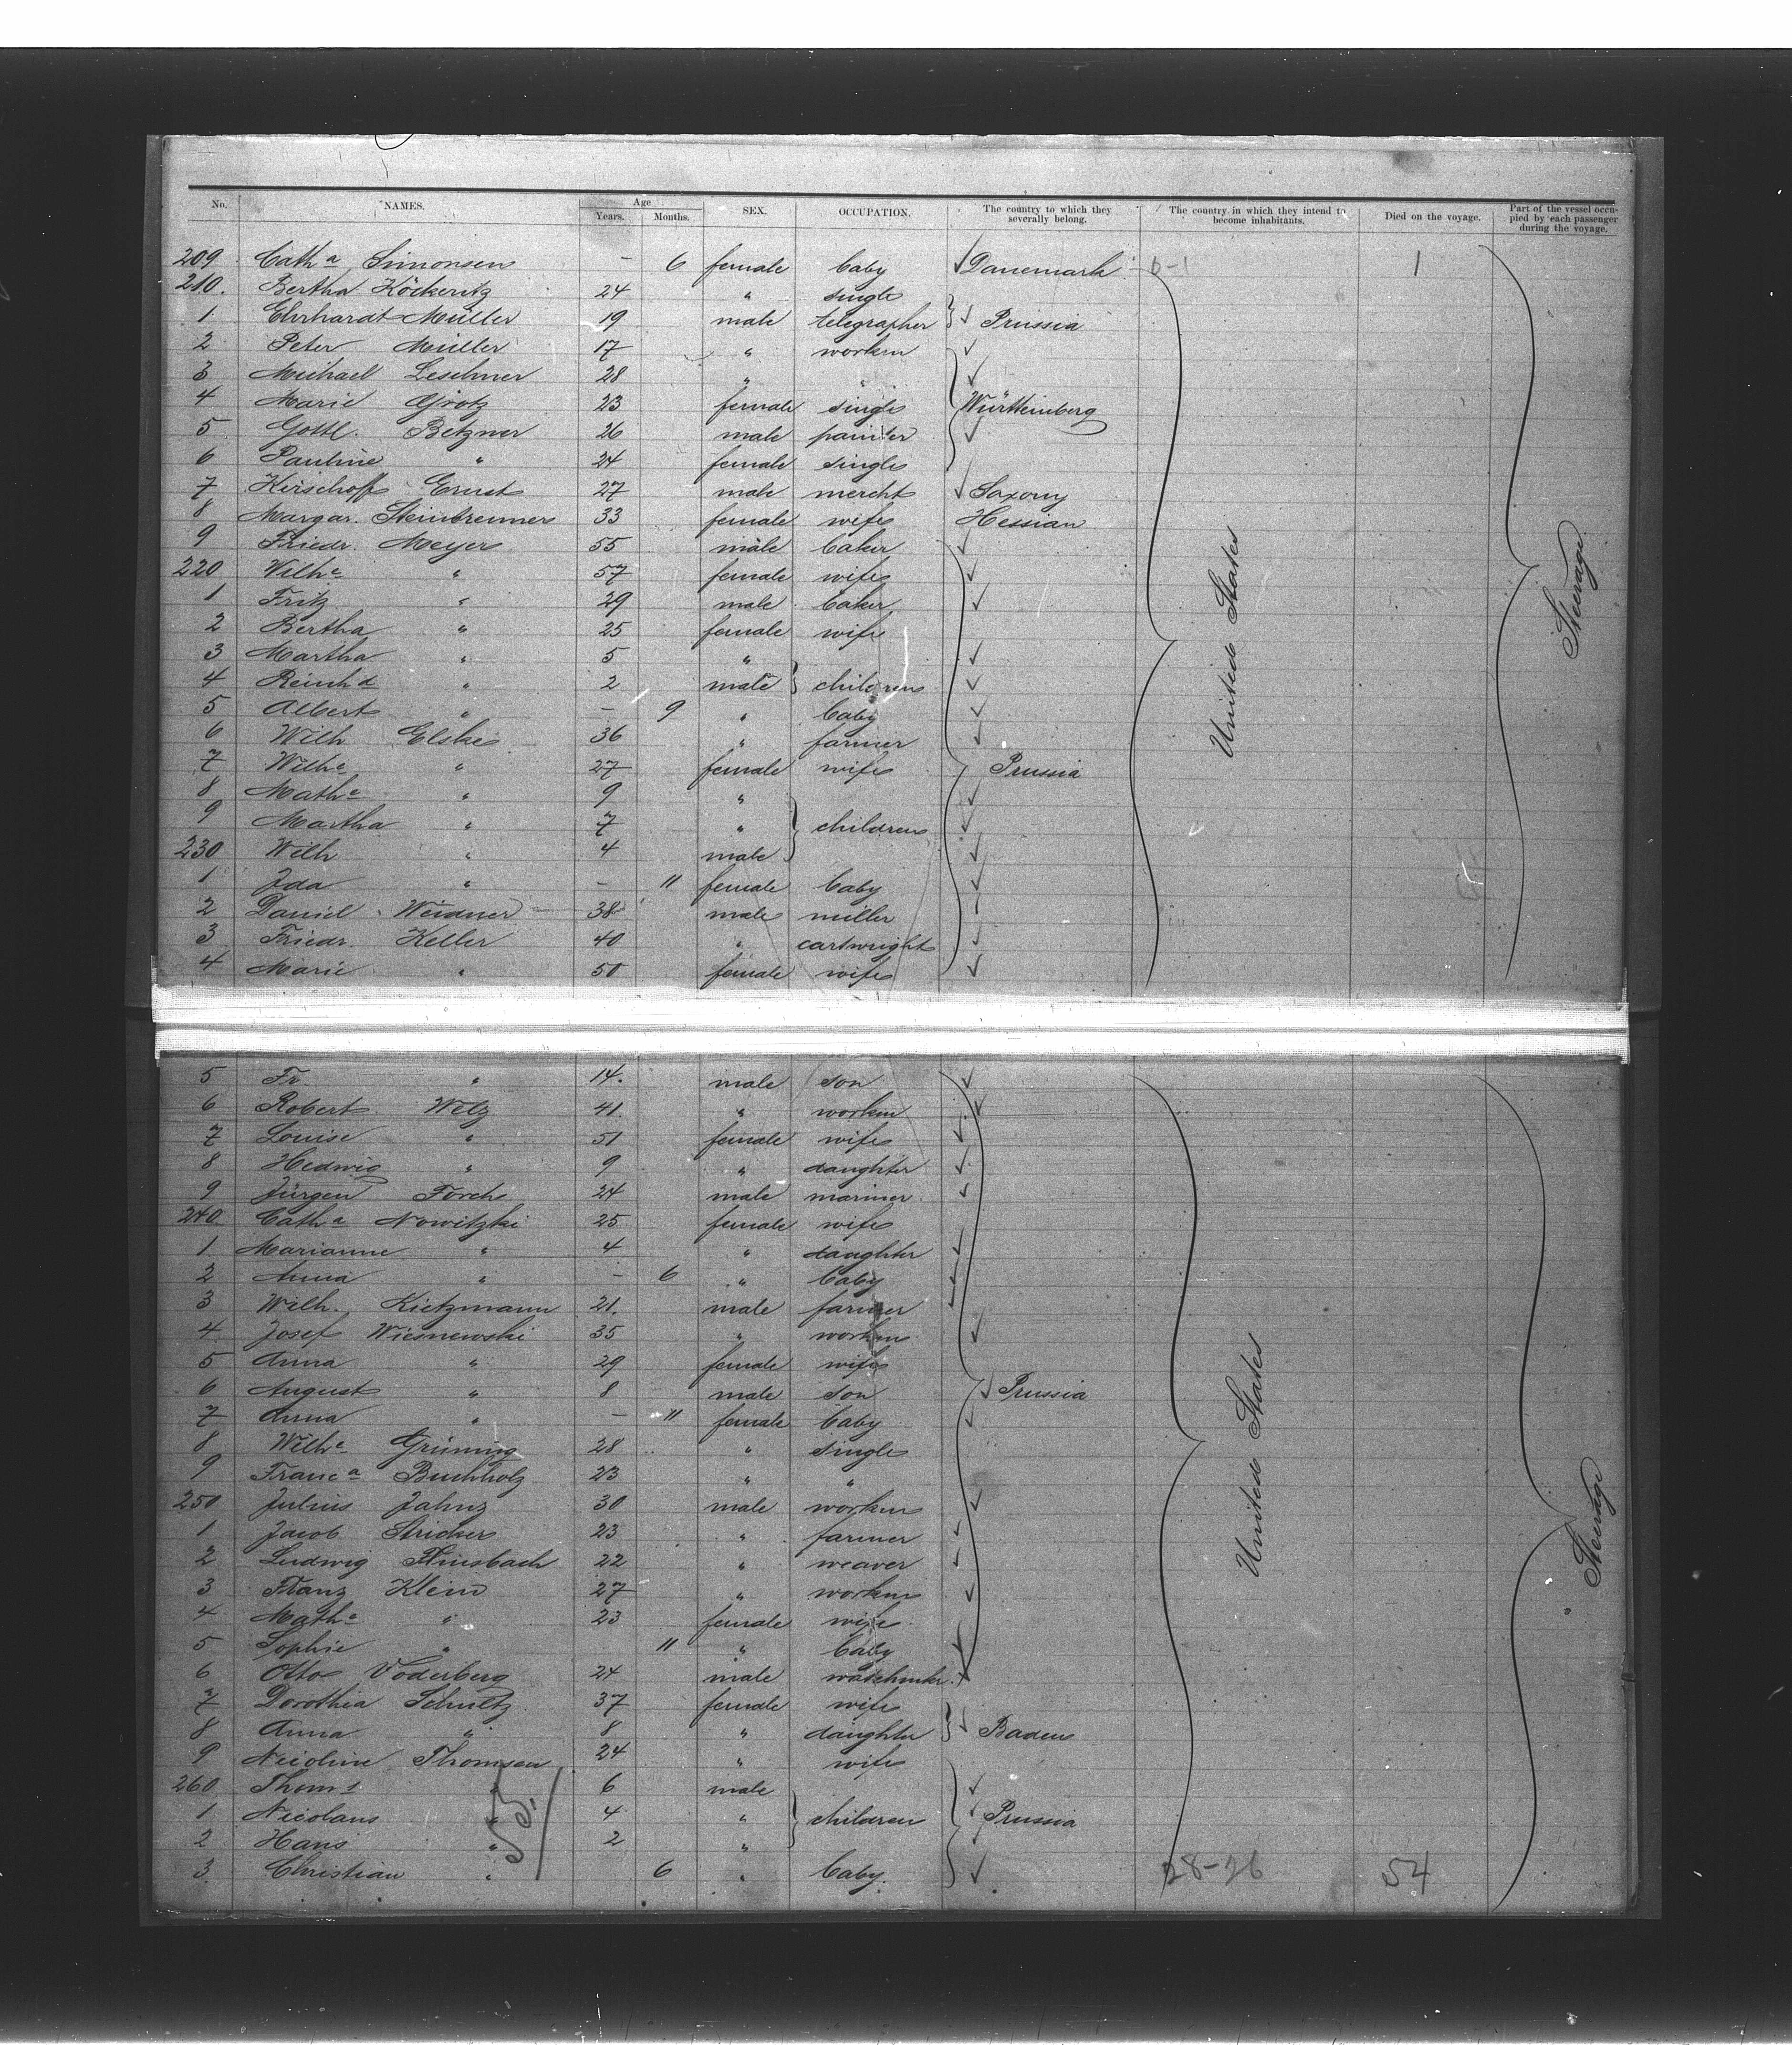 No. NAMES. Age Years. Months. SEX. OCCUPATION. The country to which they severally belong. The country in which they intend to become inhabitants. Died on the voyage. Part of the vessel occupied by each passenger during the voyage.
209 Cath a Simonsen – 6 female baby Danemark 0-1 1
210. Bertha Köckeritz 24 " single
1 Ehrhardt Müller 19 male telegrapher Prussia
2 Peter Müller 17 " workm
3 Michael Leschner 28 " "
4 Marie Grotz 23 female single Württemberg
5 Gottl. Betzner 26 male painter
6 Pauline " 24 female single
7 Kirschoff Ernst 27 male mercht Saxony
8 Margar. Steinbrenner 33 female wife Hessian
9 Friedr. Meyer 55 male baker
220 Wilh e " 57 female wife
1 Fritz " 29 male baker
2 Bertha " 25 female wife
3 Martha " 5 "
4 Reinh d " 2 male children
5 Albert " – 9 " baby
6 Wilh Elske 36 " farmer
7 Wilh e " 27 female wife Prussia
8 Math e " 9 "
9 Martha " 7 " children
230 Wilh " 4 male
1 Ida " – 11 female baby
2 Daniel Weidner 38 male miller
3 Friedr. Keller 40 " cartwright
4 Marie " 50 female wife
United States
Steerage
5 Fr " 14. male son
6 Robert Welz 41. " workm
7 Louise " 51 female wife
8 Hedwig " 9 " daughter
9 Jürgen Förch 24 male mariner
240 Cath a Nowitzki 25 female wife
1 Marianne " 4 " daughter
2 Anna " – 6 " baby
3 Wilh. Kietzmann 21. male farmer
4 Josef Wiesnewski 35 " workm
5 Anna " 29 female wife
6 August " 8 male son Prussia
7 Anna " – 11 female baby
8 Wilh e Grüning 28 " single
9 Franc a Buchholz 23 " "
250 Julius Jahnz 30 male workm
1 Jacob Stricker 23 " farmer
2 Ludwig 22 " weaver
3 Franz Klein 27 " workm
4 Math e " 23 female wife
5 Sophie " 11 " baby
6 Otto Voderberg 24 male
7 Dorothea Schultz 37 female wife
8 Anna " 8 " daughter Baden
9 Nicoline Thomsen 24 " wife
260 Thoms " 6 male
1 Nicolaus " 4 " children Prussia
2 Hans " 2 "
3 Christian " 6 " baby. 28-26 54
United States
" Steerage